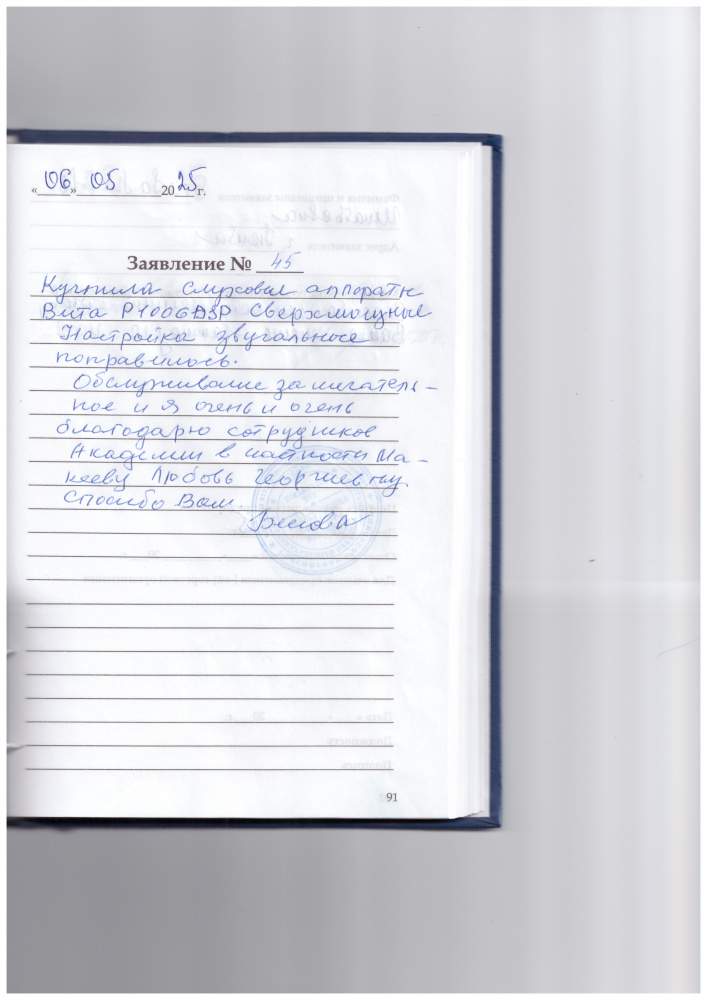 «06» 05 2025 г.
Заявление № 45
Купила слуховые аппараты
Вита P1006DSP Сверхмощные
Настройка звучальное
понравилось.
Обслуживание замечатель-
ное и я очень и очень
благодарю сотрудников
Академии в частности Ма-
кееву Любовь Георгиевну.
Спасибо Вам.
91